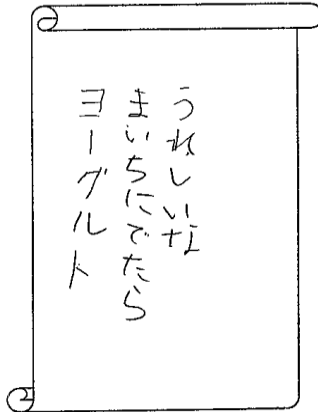 うれしいな
まいちにでたら
ヨーグルト